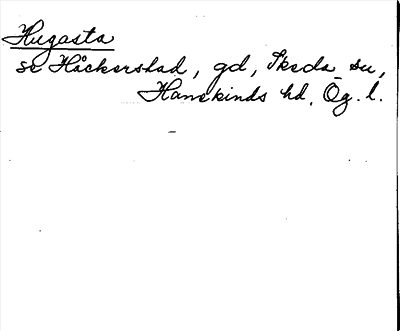 Hugasta
se Håckerstad, gd, Skeda sn,
Hanekinds hd, Ög. l.